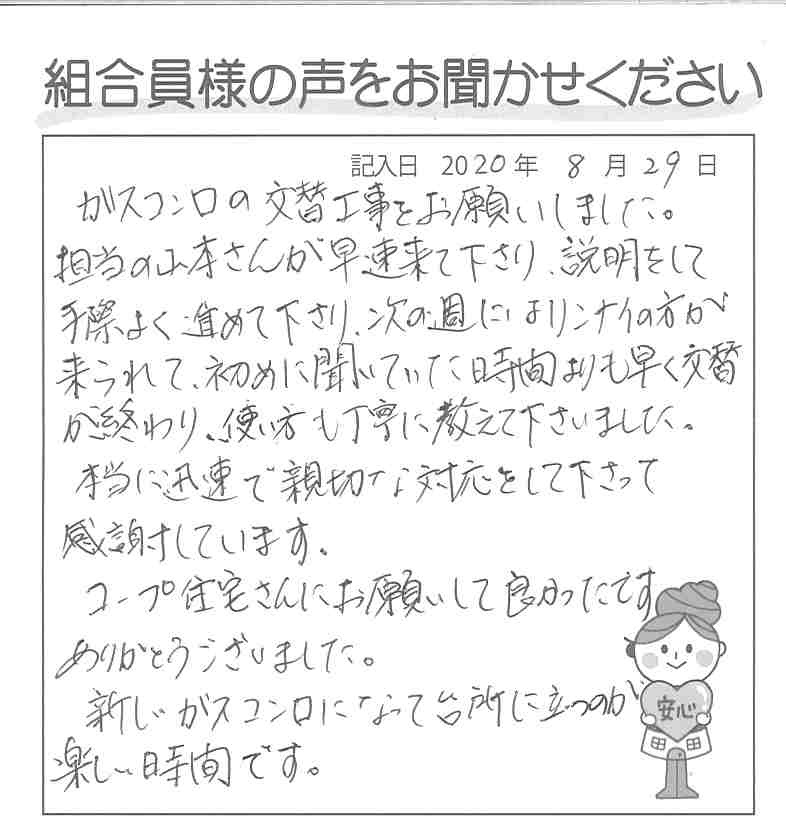 組合員様の声をお聞かせください
記入日 2020年 8月29日
ガスコンロの交替工事をお願いしました。
担当の山本さんが早速来て下さり、説明をして
手際よく進めて下さり、次の週にはリンナイの方が
来られて、初めに聞いていた時間よりも早く交替
が終わり、使い方も丁寧に教えて下さいました。
本当に迅速で親切な対応をして下さって
感謝しています。
コープ住宅さんにお願いして良かったです
ありがとうございました。
新しいガスコンロになって台所に立つのが
楽しい時間です。
安心